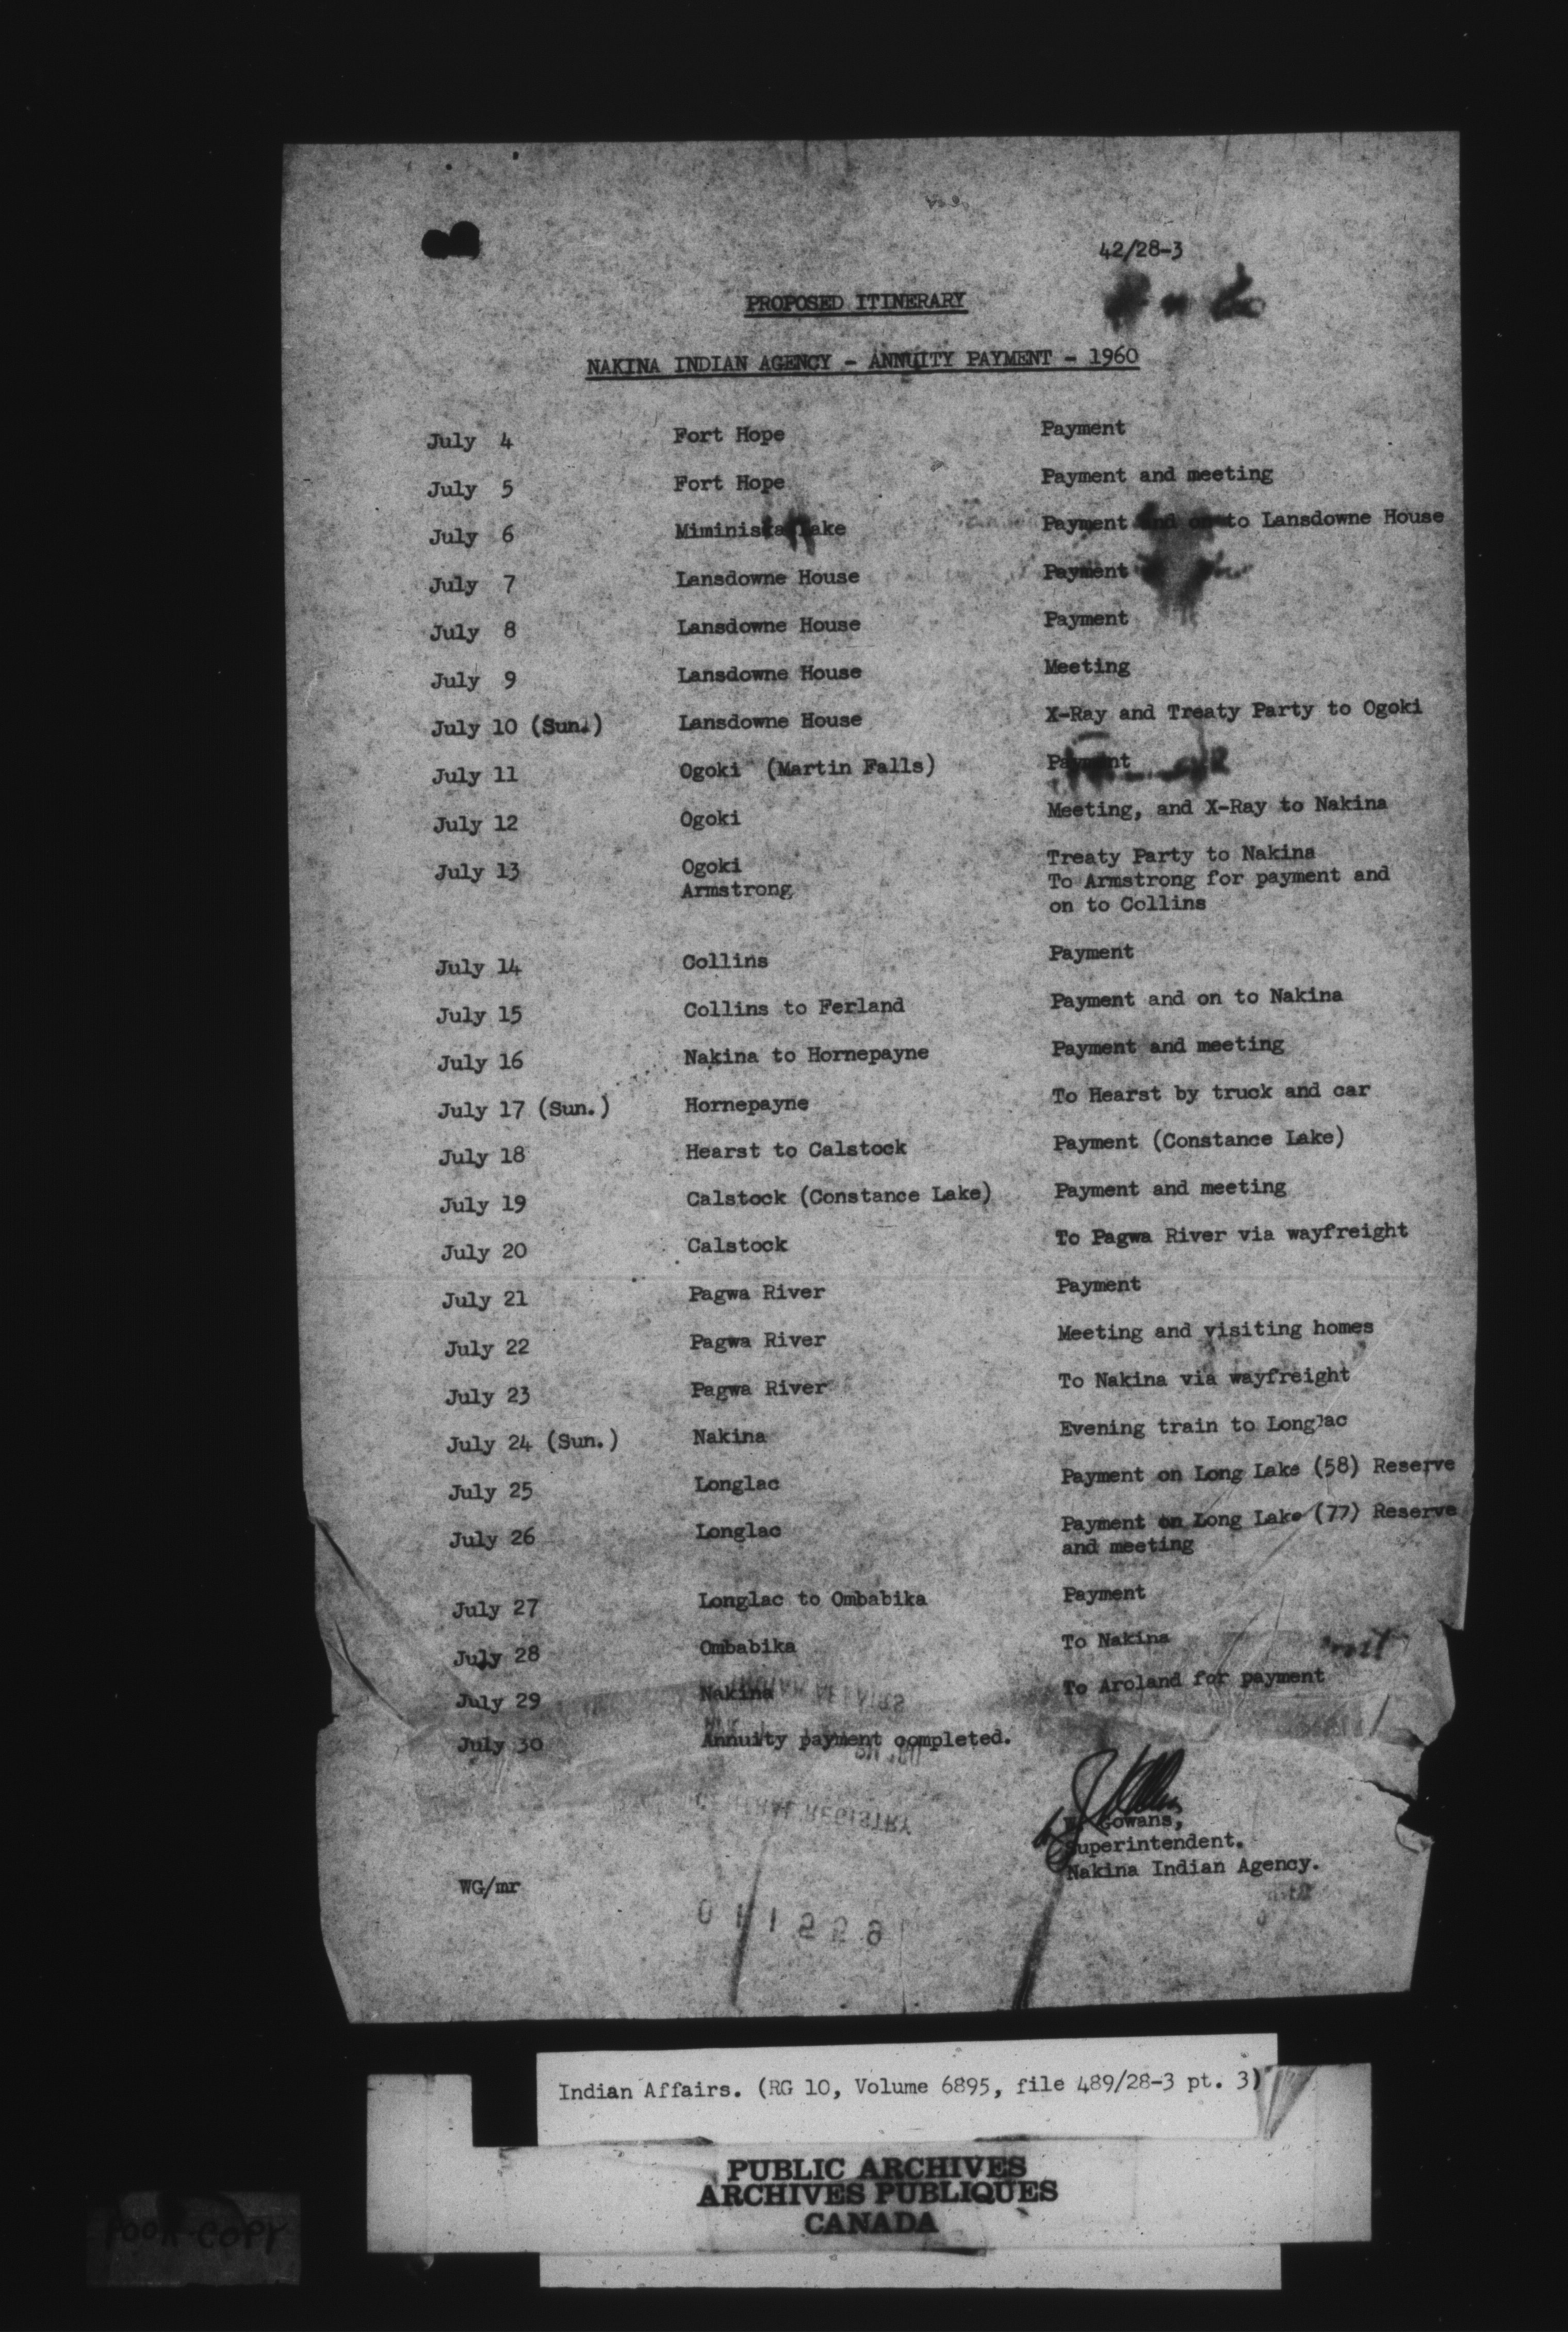 42/28-3
PROPOSED ITINERARY
NAKINA INDIAN AGENCY - ANNUITY PAYMENT - 1960
July 4 Fort Hope Payment
July 5 Fort Hope Payment and meeting
July 6 Miminiska Lake Payment and on to Lansdowne House
July 7 Lansdowne House Payment
July 8 Lansdowne House Payment
July 9 Lansdowne House Meeting
July 10 (Sun.) Lansdowne House X-Ray and Treaty Party to Ogoki
July 11 Ogoki (Martin Falls) Payment
July 12 Ogoki Meeting, and X-Ray to Nakina
July 13 Ogoki Treaty Party to Nakina
Armstrong To Armstrong for payment and
on to Collins
July 14 Collins Payment
July 15 Collins to Ferland Payment and on to Nakina
July 16 Nakina to Hornepayne Payment and meeting
July 17 (Sun.) Hornepayne To Hearst by truck and car
July 18 Hearst to Calstock Payment (Constance Lake)
July 19 Calstock (Constance Lake) Payment and meeting
July 20 Calstock To Pagwa River via wayfreight
July 21 Pagwa River Payment
July 22 Pagwa River Meeting and visiting homes
July 23 Pagwa River To Nakina via wayfreight
July 24 (Sun.) Nakina Evening train to Longlac
July 25 Longlac Payment on Long Lake (58) Reserve
July 26 Longlac Payment on Long Lake (77) Reserve
and meeting
July 27 Longlac to Ombabika Payment
July 28 Ombabika To Nakina
July 29 Nakina To Aroland for payment
July 30 Annuity payment completed.
Gowans,
Superintendent.
Nakina Indian Agency.
WG/mr
Indian Affairs. (RG 10, Volume 6895, file 489/28-3 pt. 3)
PUBLIC ARCHIVES
ARCHIVES PUBLIQUES
CANADA
POOR COPY